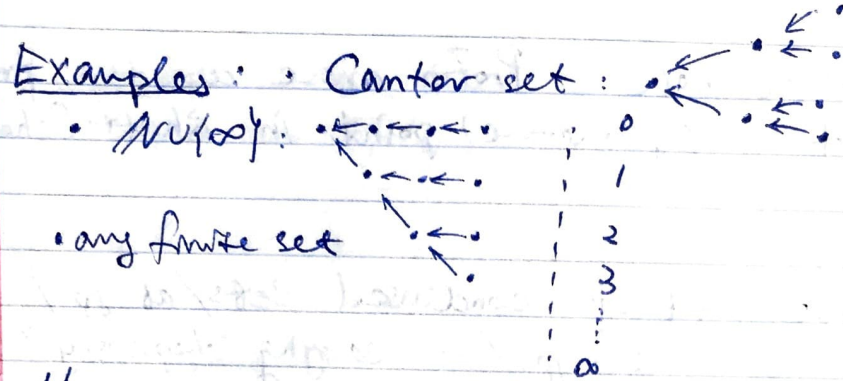 Examples: • Cantor set:
• N∪{∞}: 0
1
• any finite set 2
3
⋮
∞